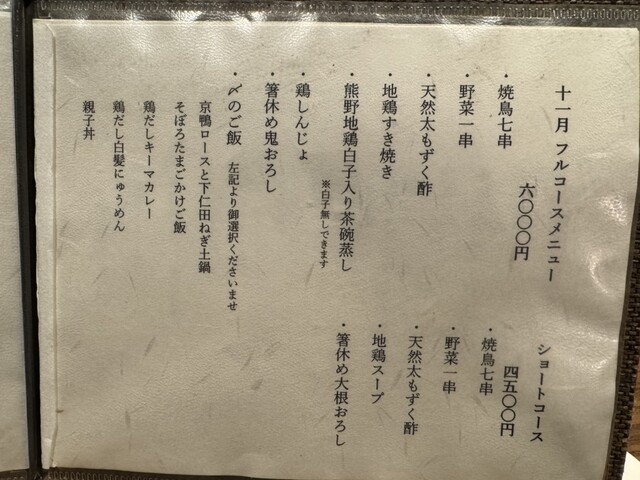 十一月 フルコースメニュー
六〇〇〇円
・焼鳥七串
・野菜一串
・天然太もずく酢
・地鶏すき焼き
・熊野地鶏白子入り茶碗蒸し
※白子無しできます
・鶏しんじょ
・箸休め鬼おろし
・〆のご飯 左記より御選択くださいませ
京鴨ロースと下仁田ねぎ土鍋
そぼろたまごかけご飯
鶏だしキーマカレー
鶏だし白髪にゅうめん
親子丼
ショートコース
四五〇〇円
・焼鳥七串
・野菜一串
・天然太もずく酢
・地鶏スープ
・箸休め大根おろし